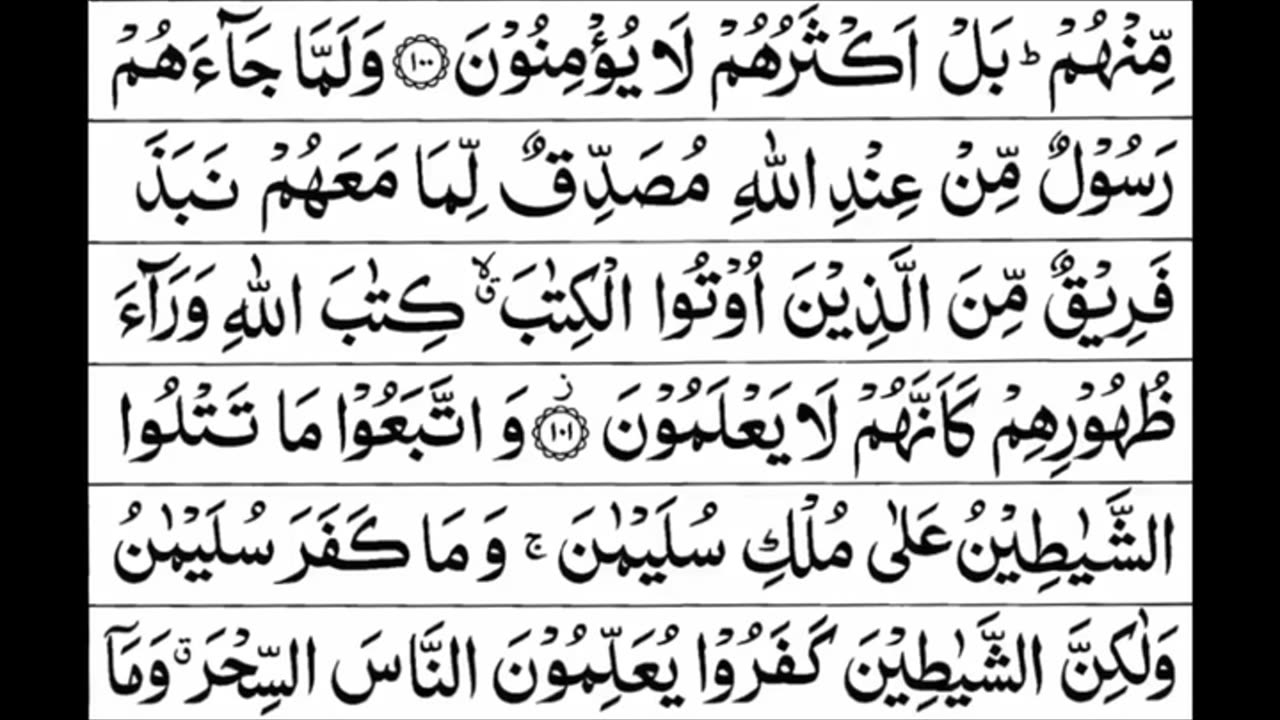 مِّنْهُمْ ؕ بَلْ اَكْثَرُهُمْ لَا يُؤْمِنُوْنَ ﴿۱۰۰﴾ وَلَمَّا جَآءَهُمْ
رَسُوْلٌ مِّنْ عِنْدِ اللّٰهِ مُصَدِّقٌ لِّمَا مَعَهُمْ نَبَذَ
فَرِيْقٌ مِّنَ الَّذِيْنَ اُوْتُوا الْكِتٰبَ ۙۗ كِتٰبَ اللّٰهِ وَرَآءَ
ظُهُوْرِهِمْ كَاَنَّهُمْ لَا يَعْلَمُوْنَ ؗ ﴿۱۰۱﴾ وَ اتَّبَعُوْا مَا تَتْلُوا
الشَّيٰطِيْنُ عَلٰى مُلْكِ سُلَيْمٰنَ ۚ وَ مَا كَفَرَ سُلَيْمٰنُ
وَلٰكِنَّ الشَّيٰطِيْنَ كَفَرُوْا يُعَلِّمُوْنَ النَّاسَ السِّحْرَ ۗ وَمَآ